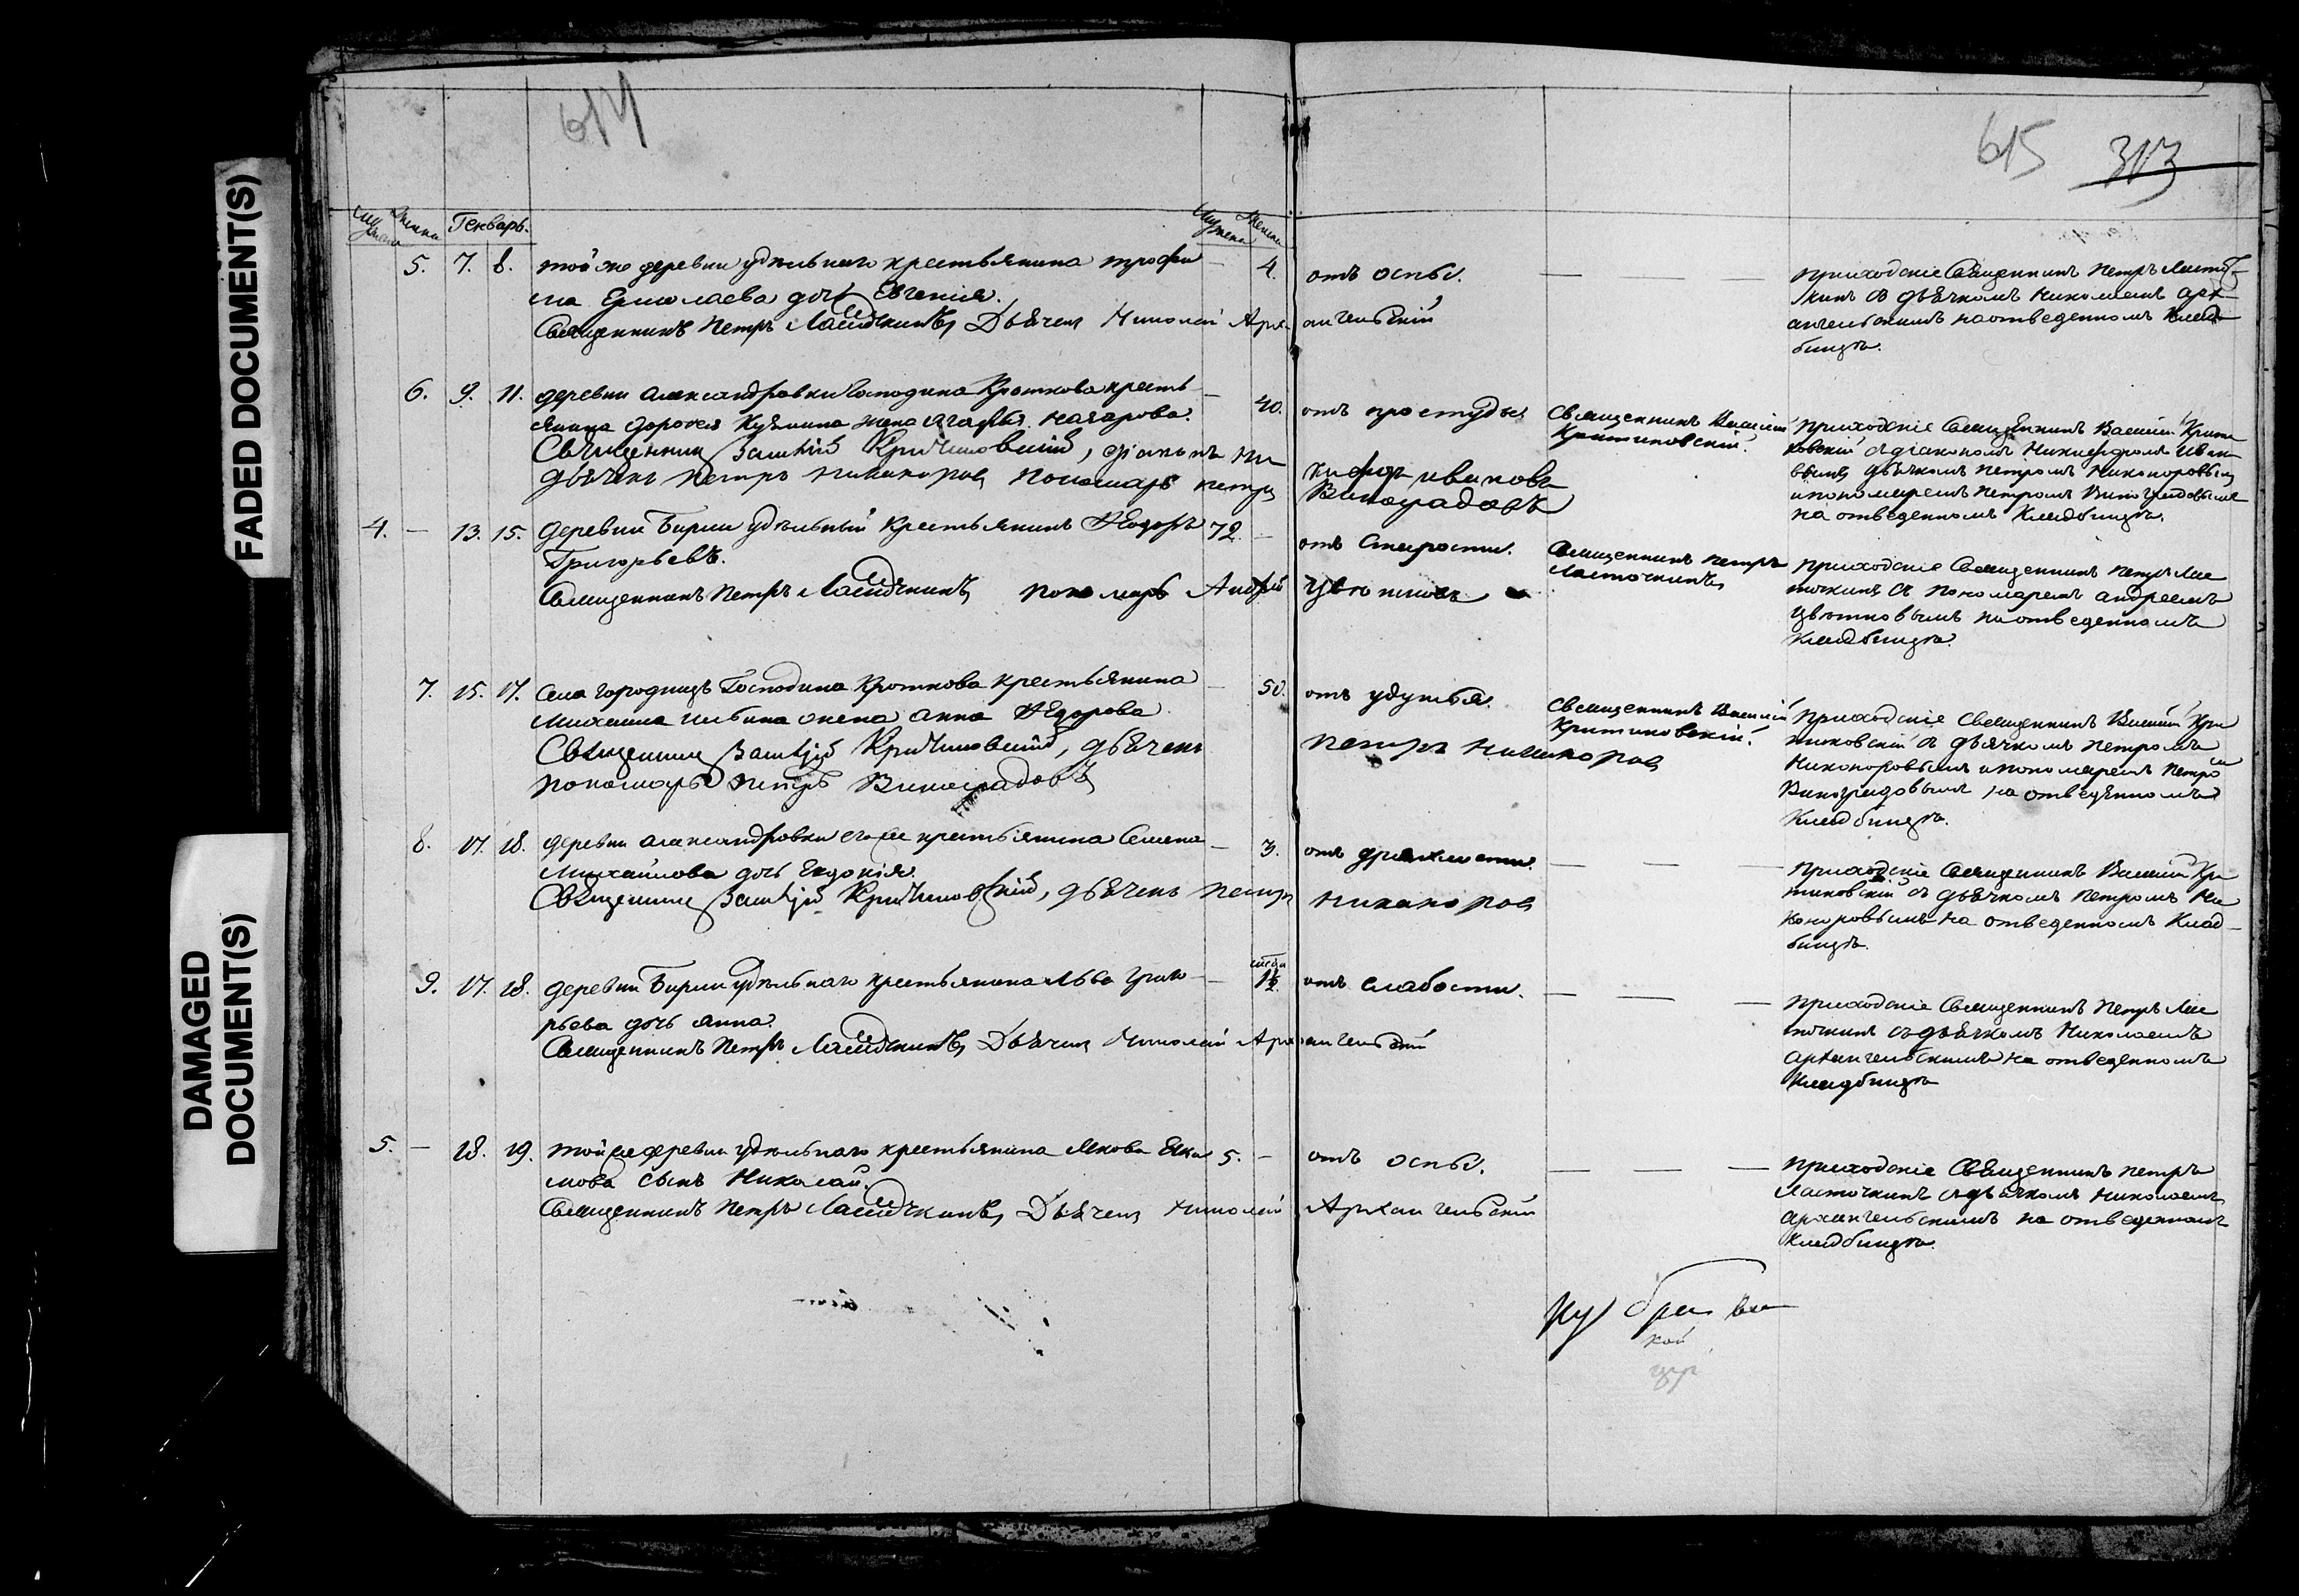 FADED DOCUMENT(S)
DAMAGED
DOCUMENT(S)
614
615 313
Мужеска Женска Генварь. Мужеска Женска
5. 7. 8. той же деревни удѣльнаго крестьянина Трофи — 4. отъ оспы. — — —
ма Ермолаева дочь Евгенія.
Священникъ Петръ Ласточкинъ, Дьячекъ Николай Архангельскій
Приходскіе Священникъ Петръ Ласточ-
кинъ съ дьячкомъ Николаемъ Арх-
ангельскимъ на отведенномъ Клад-
бищѣ.
6. 9. 11. деревни Александровки Господина Кроткова кресть — 40. отъ простуды
янина Дорофея Кузмина жена Агафья Назарова.
Священникъ Василій Критиковскій, діаконъ Никифоръ Ивановъ
дьячекъ Петръ Никаноровъ Пономарь Петръ Виноградовъ
Священникъ Василій
Критиковскій.
Приходскіе Священникъ Василій Крити
ковскій съ діакономъ Никифоромъ Ивано
вымъ дьячкомъ Петромъ Никоноровымъ
и пономаремъ Петромъ Виноградовымъ
на отведенномъ Кладбищѣ.
4. — 13. 15. Деревни Бирли удѣльный Крестьянинъ Ѳедоръ 72. — отъ старости.
Григорьевъ.
Священникъ Петръ Ласточкинъ Пономарь Андрей Цвѣтковъ
Священникъ Петръ
Ласточкинъ
Приходскіе Священникъ Петръ Лас
точкинъ съ пономаремъ Андреемъ
Цвѣтковымъ на отведенномъ
Кладбищѣ.
7. 15. 17. Села Городищъ Господина Кроткова крестьянина — 50. отъ удушья.
Михаила Ильина жена Анна Ѳедорова
Священникъ Василій Критиковскій, дьячекъ Петръ Никаноровъ
пономарь Петръ Виноградовъ
Священникъ Василій
Критиковскій.
Приходскіе Священникъ Василій Кри
тиковскій съ дьячкомъ Петромъ
Никоноровымъ и пономаремъ Петромъ
Виноградовымъ на отведенномъ
Кладбищѣ.
8. 17. 18. деревни Александровки его же крестьянина Семена — 3. отъ дряхлости. — — —
Михайлова дочь Евдокія.
Священникъ Василій Критиковскій, дьячекъ Петръ Никаноровъ
Приходскіе Священникъ Василій Кри
тиковскій съ дьячкомъ Петромъ Ни
коноровымъ на отведенномъ Клад-
бищѣ.
9. 17. 18. деревни Бирли удѣльнаго крестьянина Льва Григо — 1½ отъ слабости. — — —
рьева дочь Анна.
Священникъ Петръ Ласточкинъ, Дьячекъ Николай Архангельскій
Приходскіе Священникъ Петръ Лас
точкинъ съ дьячкомъ Николаемъ
Архангельскимъ на отведенномъ
Кладбищѣ
5. — 18. 19. той же деревни удѣльнаго крестьянина Якова Еки 5. — отъ оспы. — — —
мова сынъ Николай.
Священникъ Петръ Ласточкинъ, Дьячекъ Николай Архангельскій
Приходскіе Священникъ Петръ
Ласточкинъ съ дьячкомъ Николаемъ
Архангельскимъ на отведенномъ
Кладбищѣ.